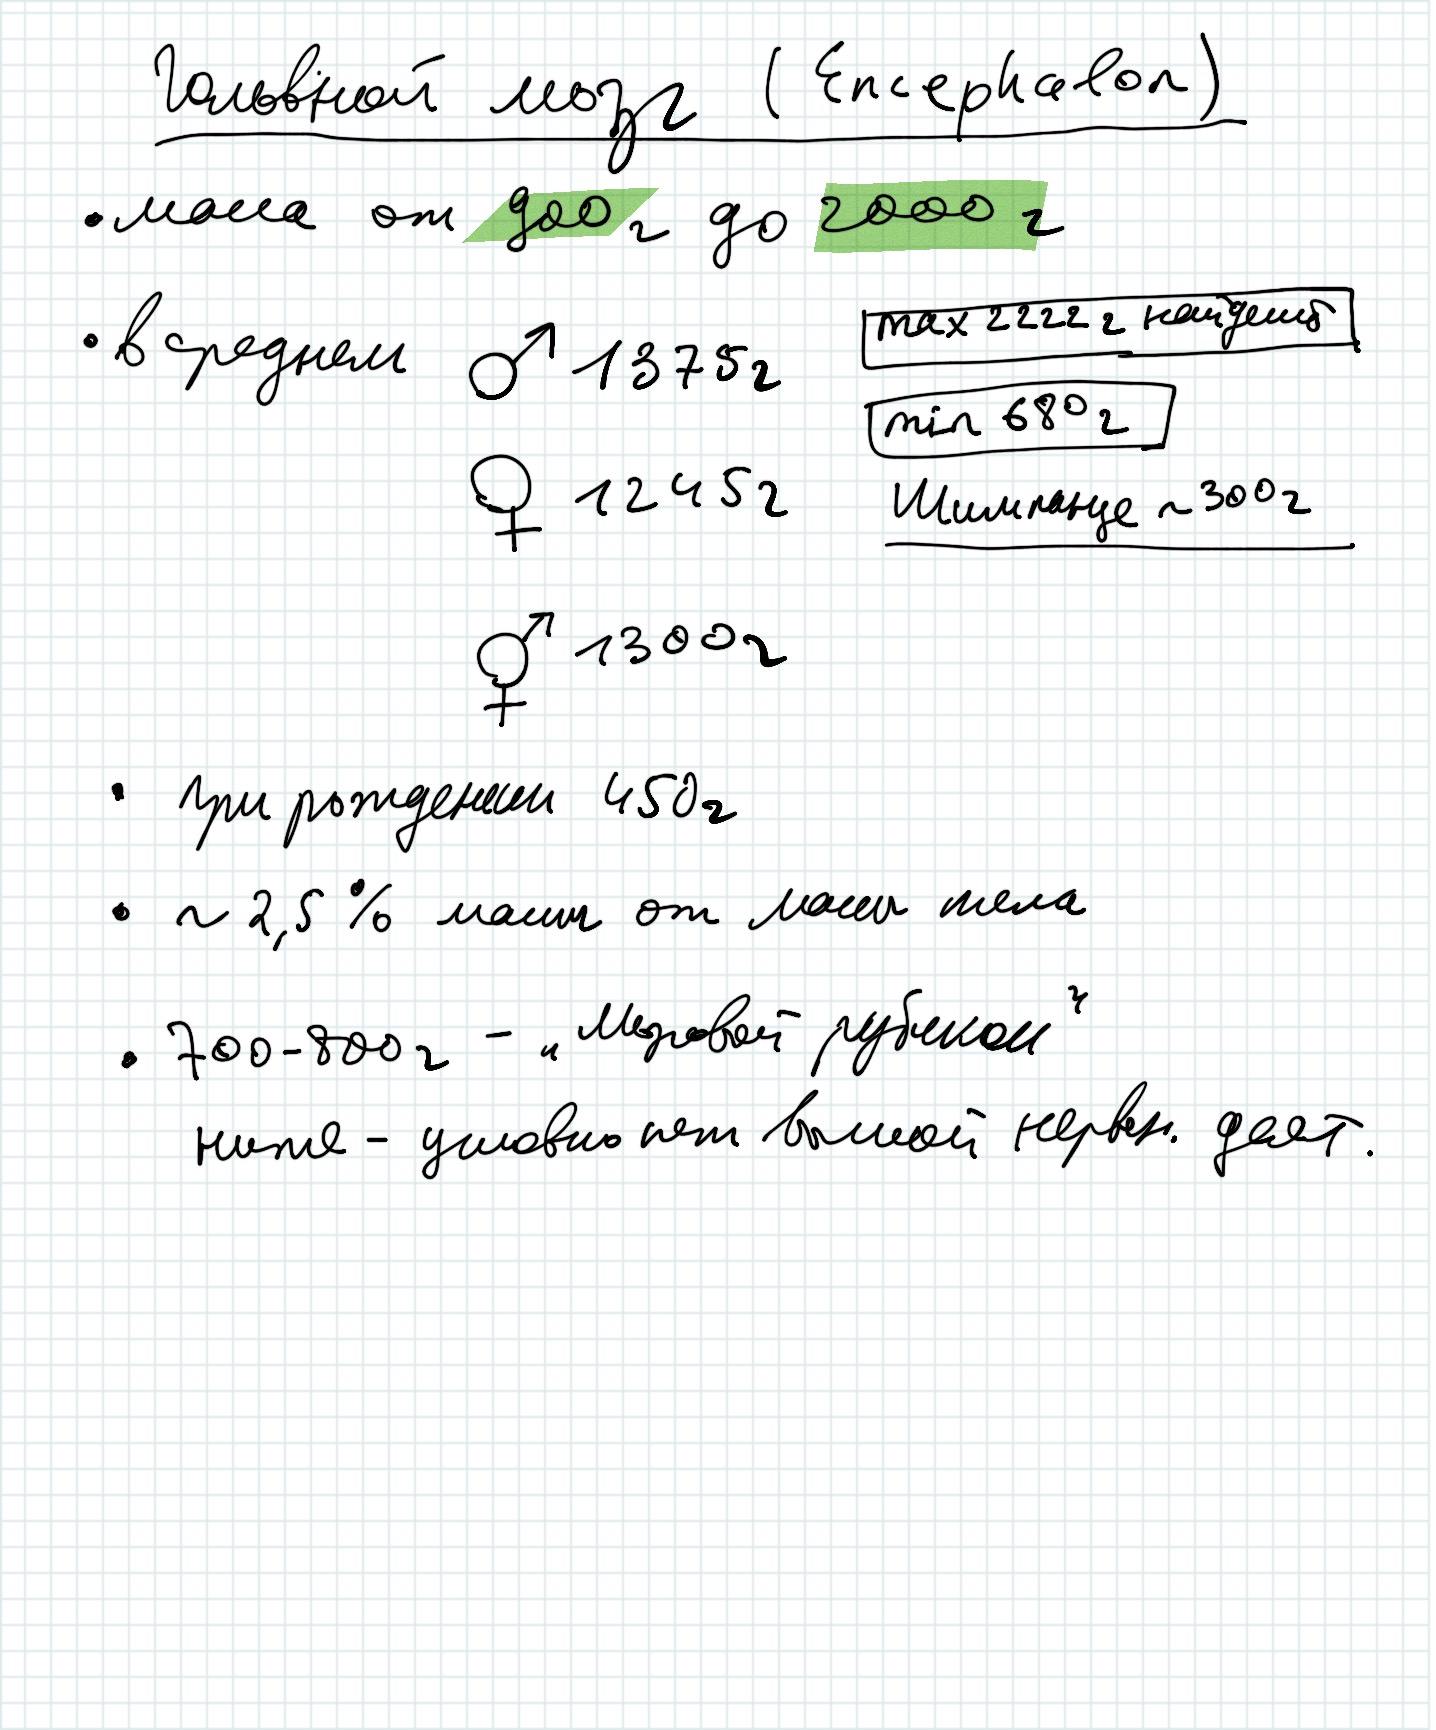 Головной мозг (Encephalon)
• масса от 900 г до 2000 г
• в среднем ♂ 1375 г
max 2222 г найдены
min 680 г
♀ 1245 г
Шимпанзе ~ 300 г
⚥ 1300 г
• при рождении 450 г
• ~ 2,5 % массы от массы тела
• 700-800 г - „Мозговой рубикон"
ниже - условно нет высшей нервн. деят.